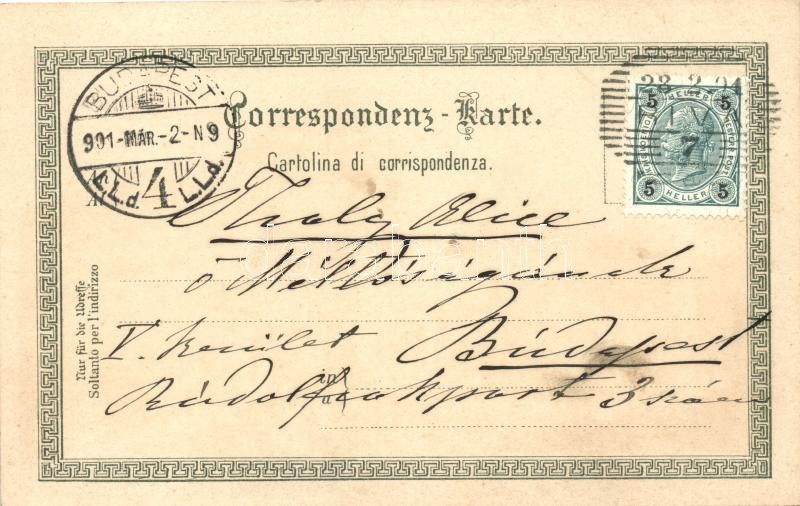 BUDAPEST
901-MÁR.-2-N9
4
28 2 01
IV
7
5 HELLER 5
5 HELLER 5
Correspondenz-Karte.
Cartolina di corrispondenza.
Thaly Alice
ő Méltóságának
V. kerület Budapest
Rudolfrakpart 3 szám
Nur für die Adresse
Soltanto per l'indirizzo